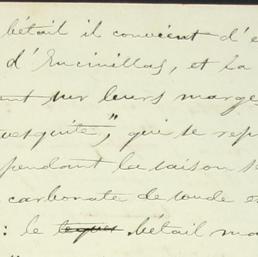 bétail il convient d'e
d'Encinillas, et la
ent sur leurs marge
uesquite", qui se rep
pendant la saison s
carbonate de soude e
: le bétail ma